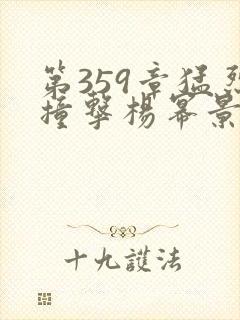 第359章猛烈
撞擊楊冪景
十九護法